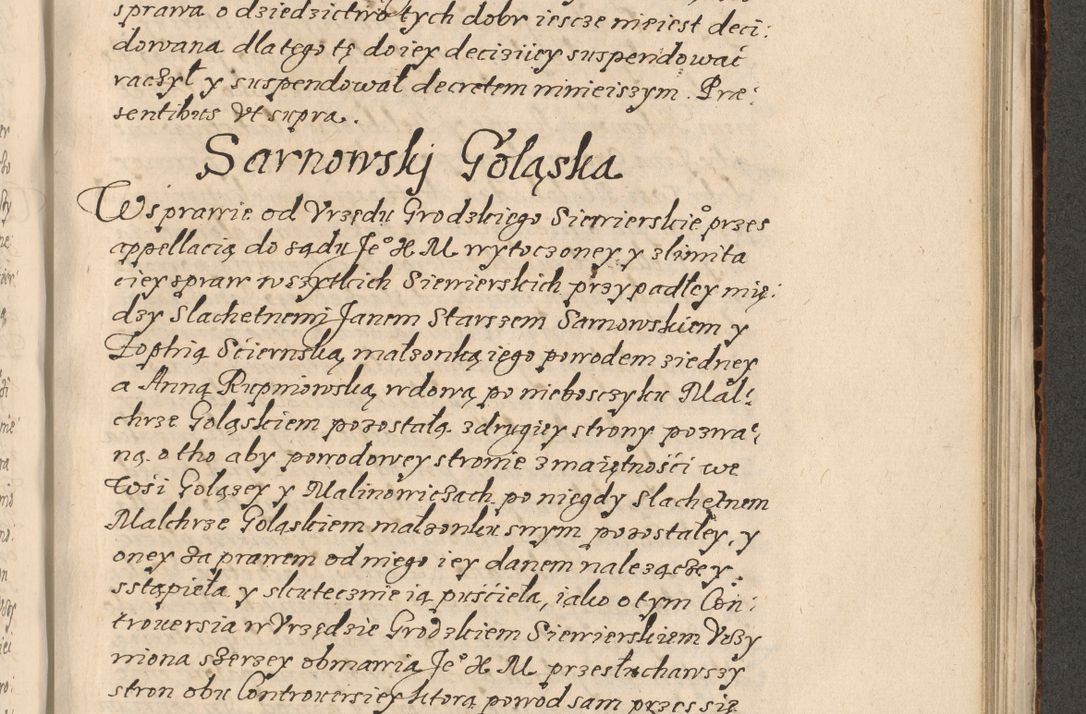 sprawa o dziedzictwo tych dobr iescze nieiest deci:
dowana dla tego tę do iey deciziiey suspendować
raczył y suspendował decretem ninieiszym. Præ:
sentibus Vt supra.
Sarnowskj Goląska
W sprawie od Vrzędu Grodzkiego Siewierskieº przes
appellacią do sądu Jeº X M. wytoczoney y zlimita
ciey spraw wszytkich Siewierskich przypadłey mię:
dzy Slachetnemj Janem Starszem Sarnowskiem y
Zophią Ściernską małzonką iego powodem ziedney
a Anną Rupniowską wdową po nieboszczyku Mal:
chrze Goląskiem pozostałą zdrugiey strony pozwa:
ną. o tho aby powodowey stronie z maiętności we
Wsi Goląszey y Malinowiczach po niegdy Slachetnem
Malchrze Goląskiem malzonku swym pozostałey, y
oney za prawem od niego iey danem należączey
sstąpieła y skutecznie ią puściela, iako o tym Con:
trouersia w Vrzędzie Grodzkiem Siewierskiem Vczy
niona szerzey obmawia Jeº X M. przesłuchawszy
stron obu Controuersiey ktorą powod sam przes się